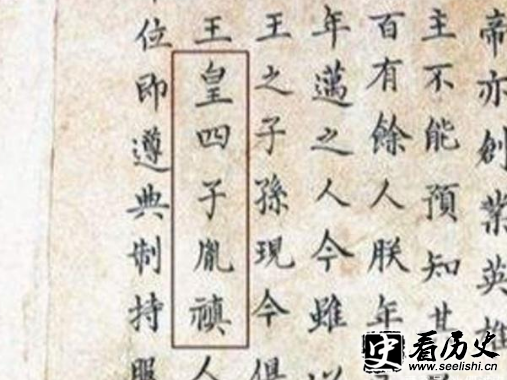 帝亦創業英雄
主不能預知其
百有餘人朕年
年邁之人今雖以
王之子孫現今俱
王皇四子胤禛人
位即遵典制持服
看历史
www.seelishi.cn